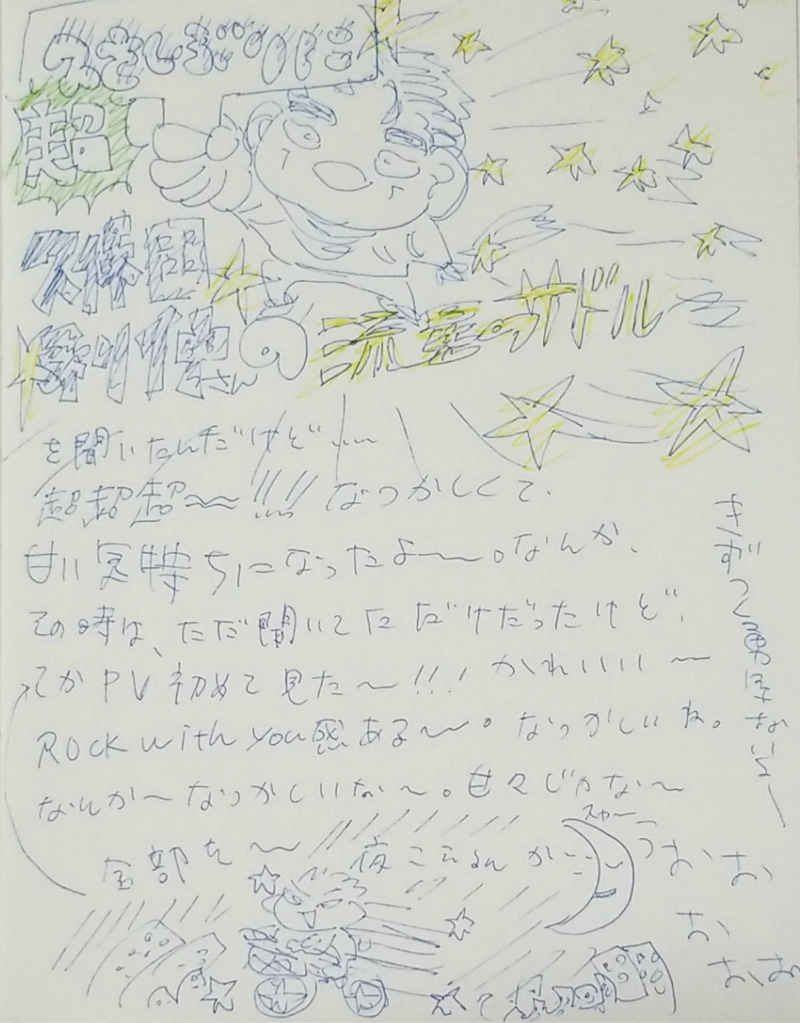 ひさしぶりに
超
久保田
利伸さんの
流星のサドル
を聞いたんだけど……
超超超〜〜!!!! なつかしくて、
甘い気持ちになったよ〜〜。なんか、
その時は、ただ聞いてただけだったけど、
てかPV初めて見た〜!!! かわいいい〜
Rock with you感ある〜〜。なつかしいね。
なんか〜なつかしいな〜。甘々じかな〜
全部を〜 夜こえるんか〜
きずつく勇気ないと〜
スヤー
うおお
お
おお